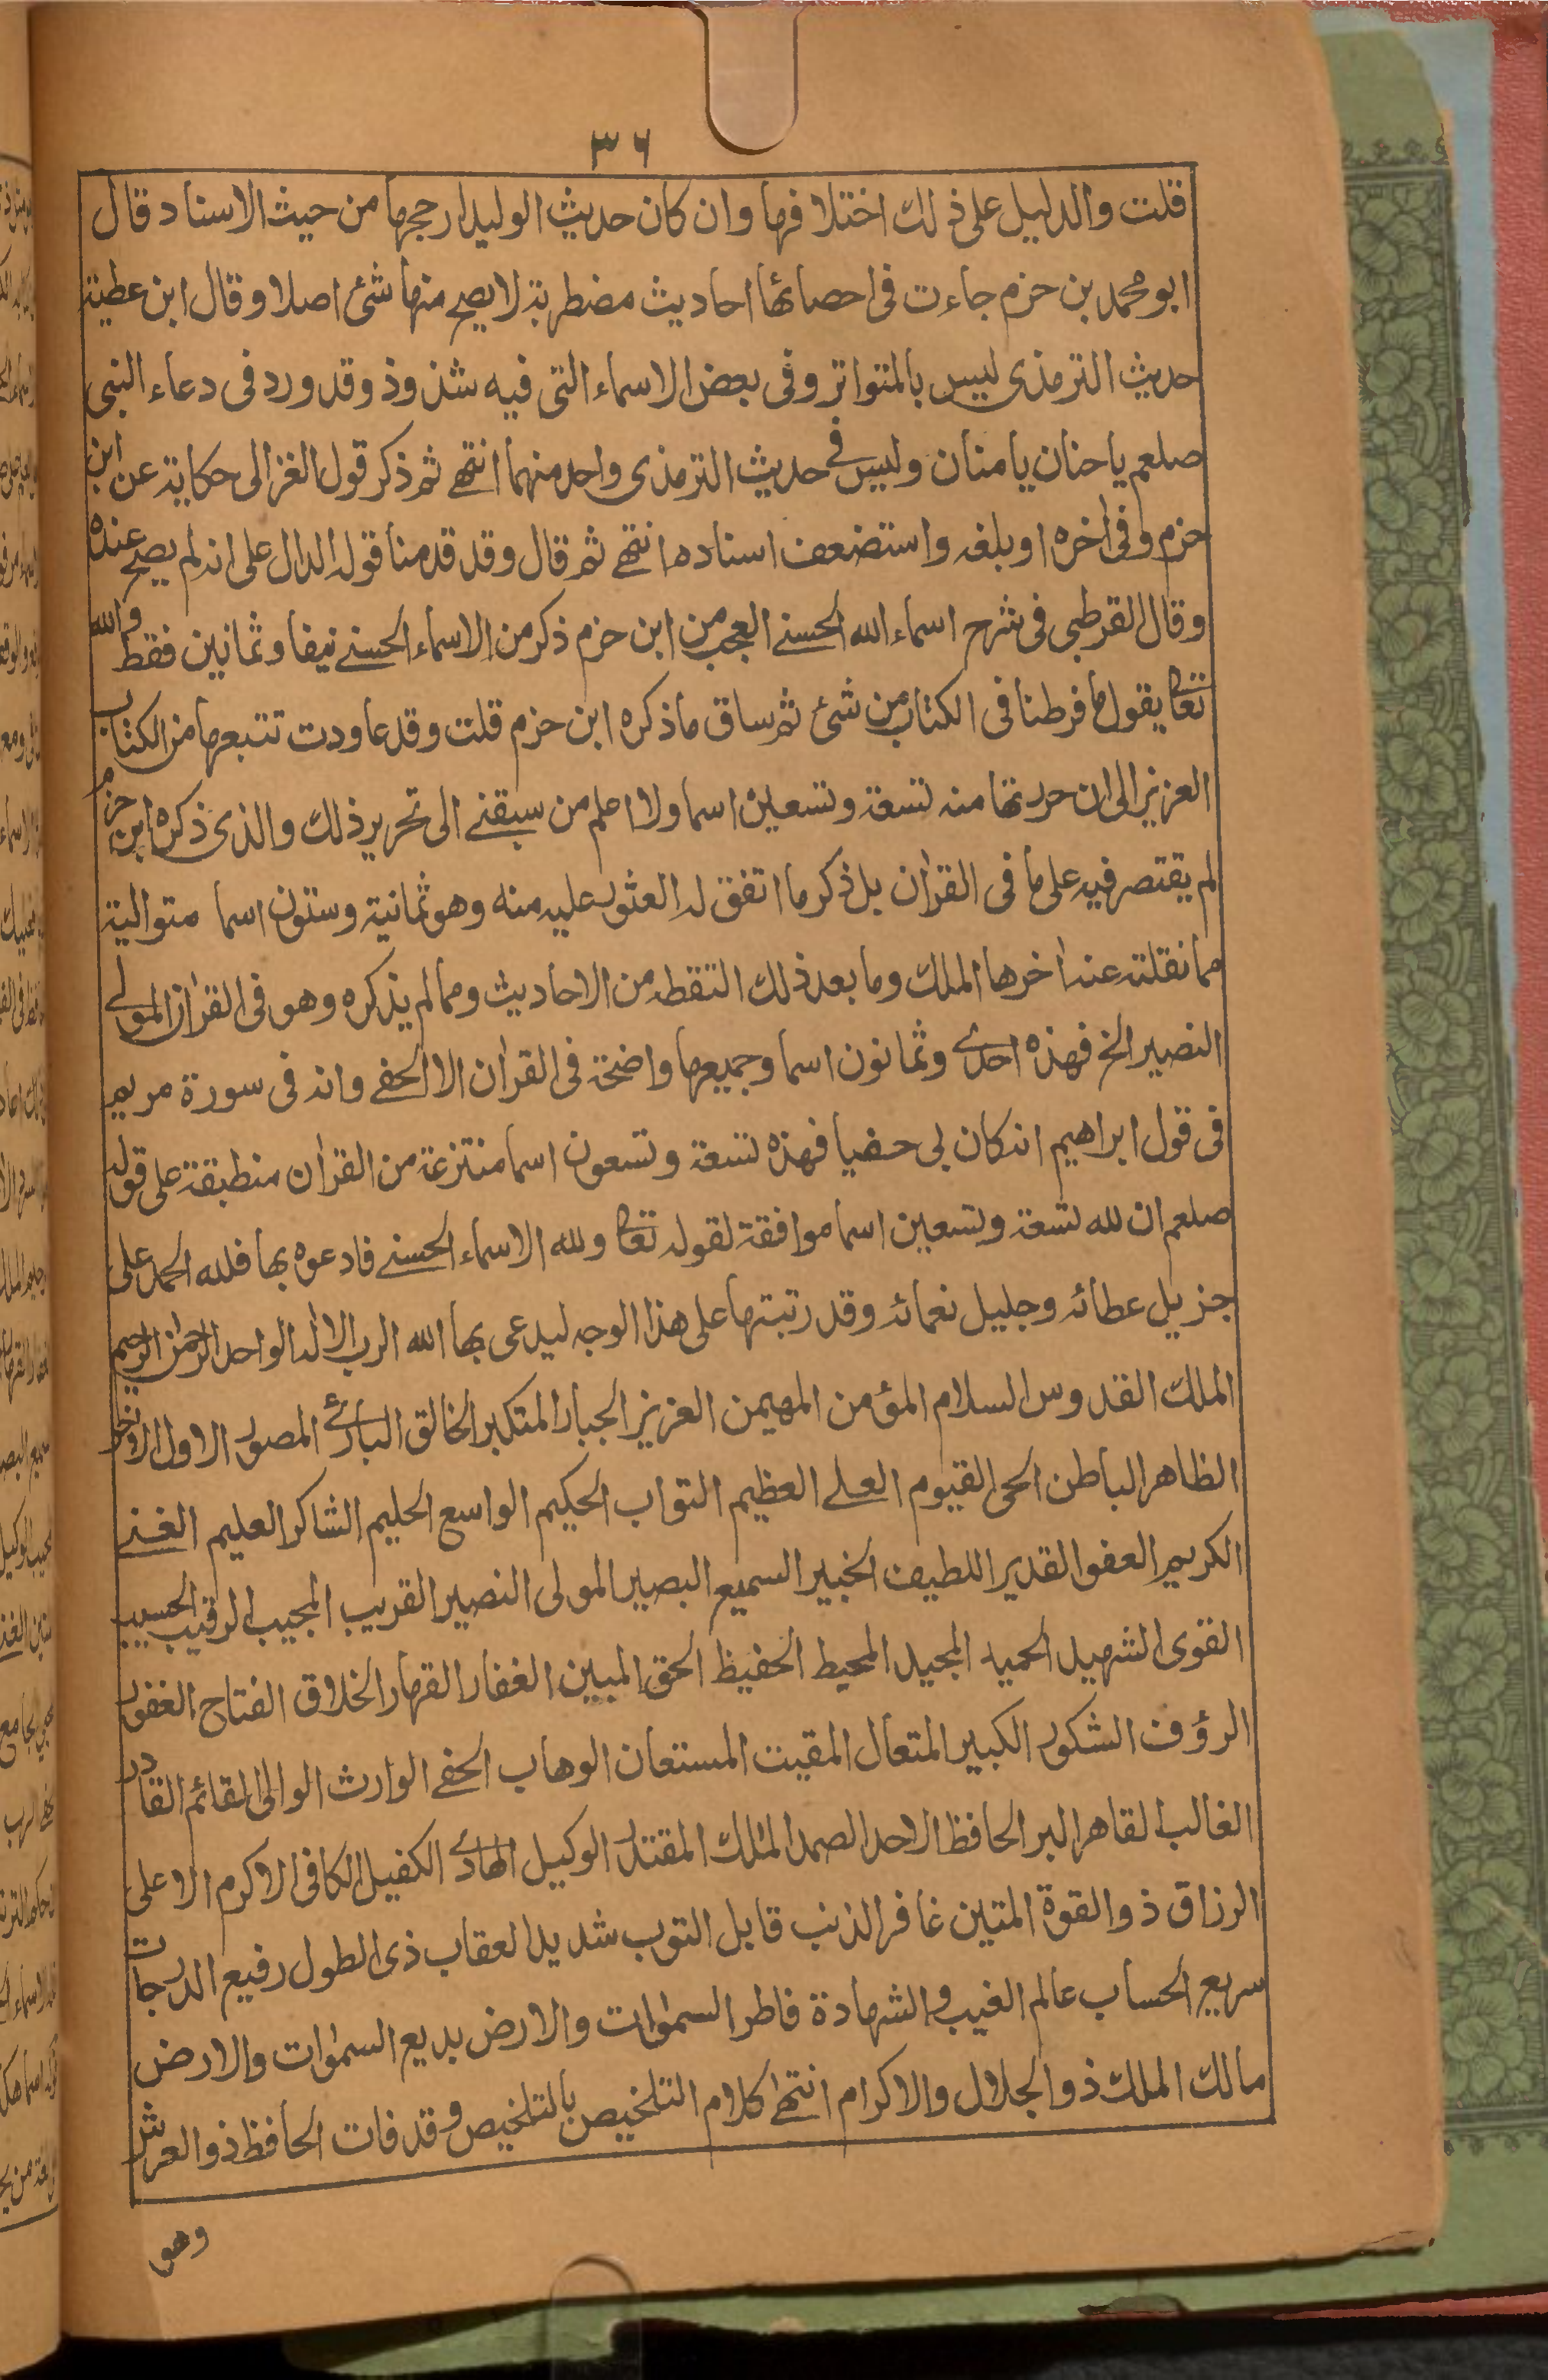 ٣٦
قلت والدليل على ذلك اختلافها وان كان حديث الوليد ارجحها من حيث الاسناد قال
ابو محمد بن حزم جاءت فى احصائها احاديث مضطربة لا يصح منها شئ اصلا وقال ابن عطية
حديث الترمذى ليس بالمتواتر وفى بعض الاسماء التى فيه شذوذ وقد ورد فى دعاء النبى
صلعم يا حنان يا منان وليس فى حديث الترمذى واحد منهما انتهى ثم ذكر قول الغزالى حكاية عن ابن
حزم وفى اخره او بلغه واستضعف اسناده انتهى ثم قال وقد قدمنا قوله الدال على انه لم يصح عنده
وقال القرطبى فى شرح اسماء الله الحسنى العجب من ابن حزم ذكر من الاسماء الحسنى نيفا وثمانين فقط والله
تعا يقول ما فرطنا فى الكتاب من شئ ثم ساق ما ذكره ابن حزم قلت وقد عاودت تتبعها من الكتاب
العزيز الى ان حررتها منه تسعة وتسعين اسما ولا اعلم من سبقنى الى تحرير ذلك والذى ذكره ابن حزم
لم يقتصر فيه على ما فى القران بل ذكر ما اتفق له العثور عليه منه وهو ثمانية وستون اسما متوالية
مما نقلته عنه اخرها الملك وما بعد ذلك التقطه من الاحاديث ومما لم يذكره وهو فى القران المولى
النصير الخ فهذه احدى وثمانون اسما وجميعها واضحة فى القران الا الحفى وانه فى سورة مريم
فى قول ابراهيم انه كان بى حفيا فهذه تسعة وتسعون اسما منتزعة من القران منطبقة على قوله
صلعم ان لله تسعة وتسعين اسما موافقة لقوله تعا ولله الاسماء الحسنى فادعوه بها فلله الحمد على
جزيل عطائه وجليل نعمائه وقد رتبتها على هذا الوجه ليدعى بها الله الرب الاله الواحد الرحمن الرحيم
الملك القدوس السلام المؤمن المهيمن العزيز الجبار المتكبر الخالق البارئ المصور الاول الاخر
الظاهر الباطن الحى القيوم العلى العظيم التواب الحكيم الواسع الحليم الشاكر العليم الغنى
الكريم العفو القدير اللطيف الخبير السميع البصير المولى النصير القريب المجيب الرقيب الحسيب
القوى الشهيد الحميد المجيد المحيط الحفيظ الحق المبين الغفار القهار الخلاق الفتاح الغفور
الرؤف الشكور الكبير المتعال المقيت المستعان الوهاب الحفى الوارث الوالى القائم القادر
الغالب القاهر البر الحافظ الاحد الصمد الملك المقتدر الوكيل الهادى الكفيل الكافى الاكرم الاعلى
الرزاق ذو القوة المتين غافر الذنب قابل التوب شديد العقاب ذى الطول رفيع الدرجات
سريع الحساب عالم الغيب والشهادة فاطر السموات والارض بديع السموات والارض
مالك الملك ذو الجلال والاكرام انتهى كلام التلخيص بالتلخيص وقد فات الحافظ ذو العرش
وهو